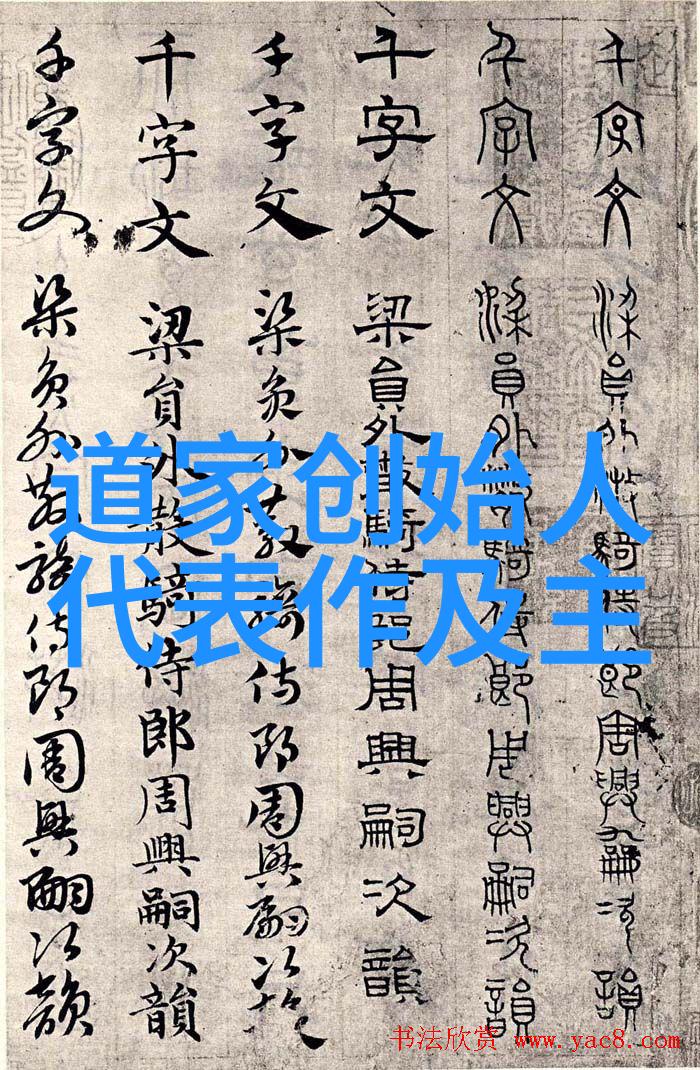 道家创始人
代表作及主
千字文
梁員外散騎侍郎周興嗣次韻
千字文
梁員外散騎侍郎周興嗣次韻
千字文
梁員外散騎侍郎周興嗣次韻
千字文
梁員外散騎侍郎周興嗣次韻
千字文
梁員外散騎侍郎周興嗣次韻
千字文
梁員外散騎侍郎周興嗣次韻
书法欣赏 www.yac8.com